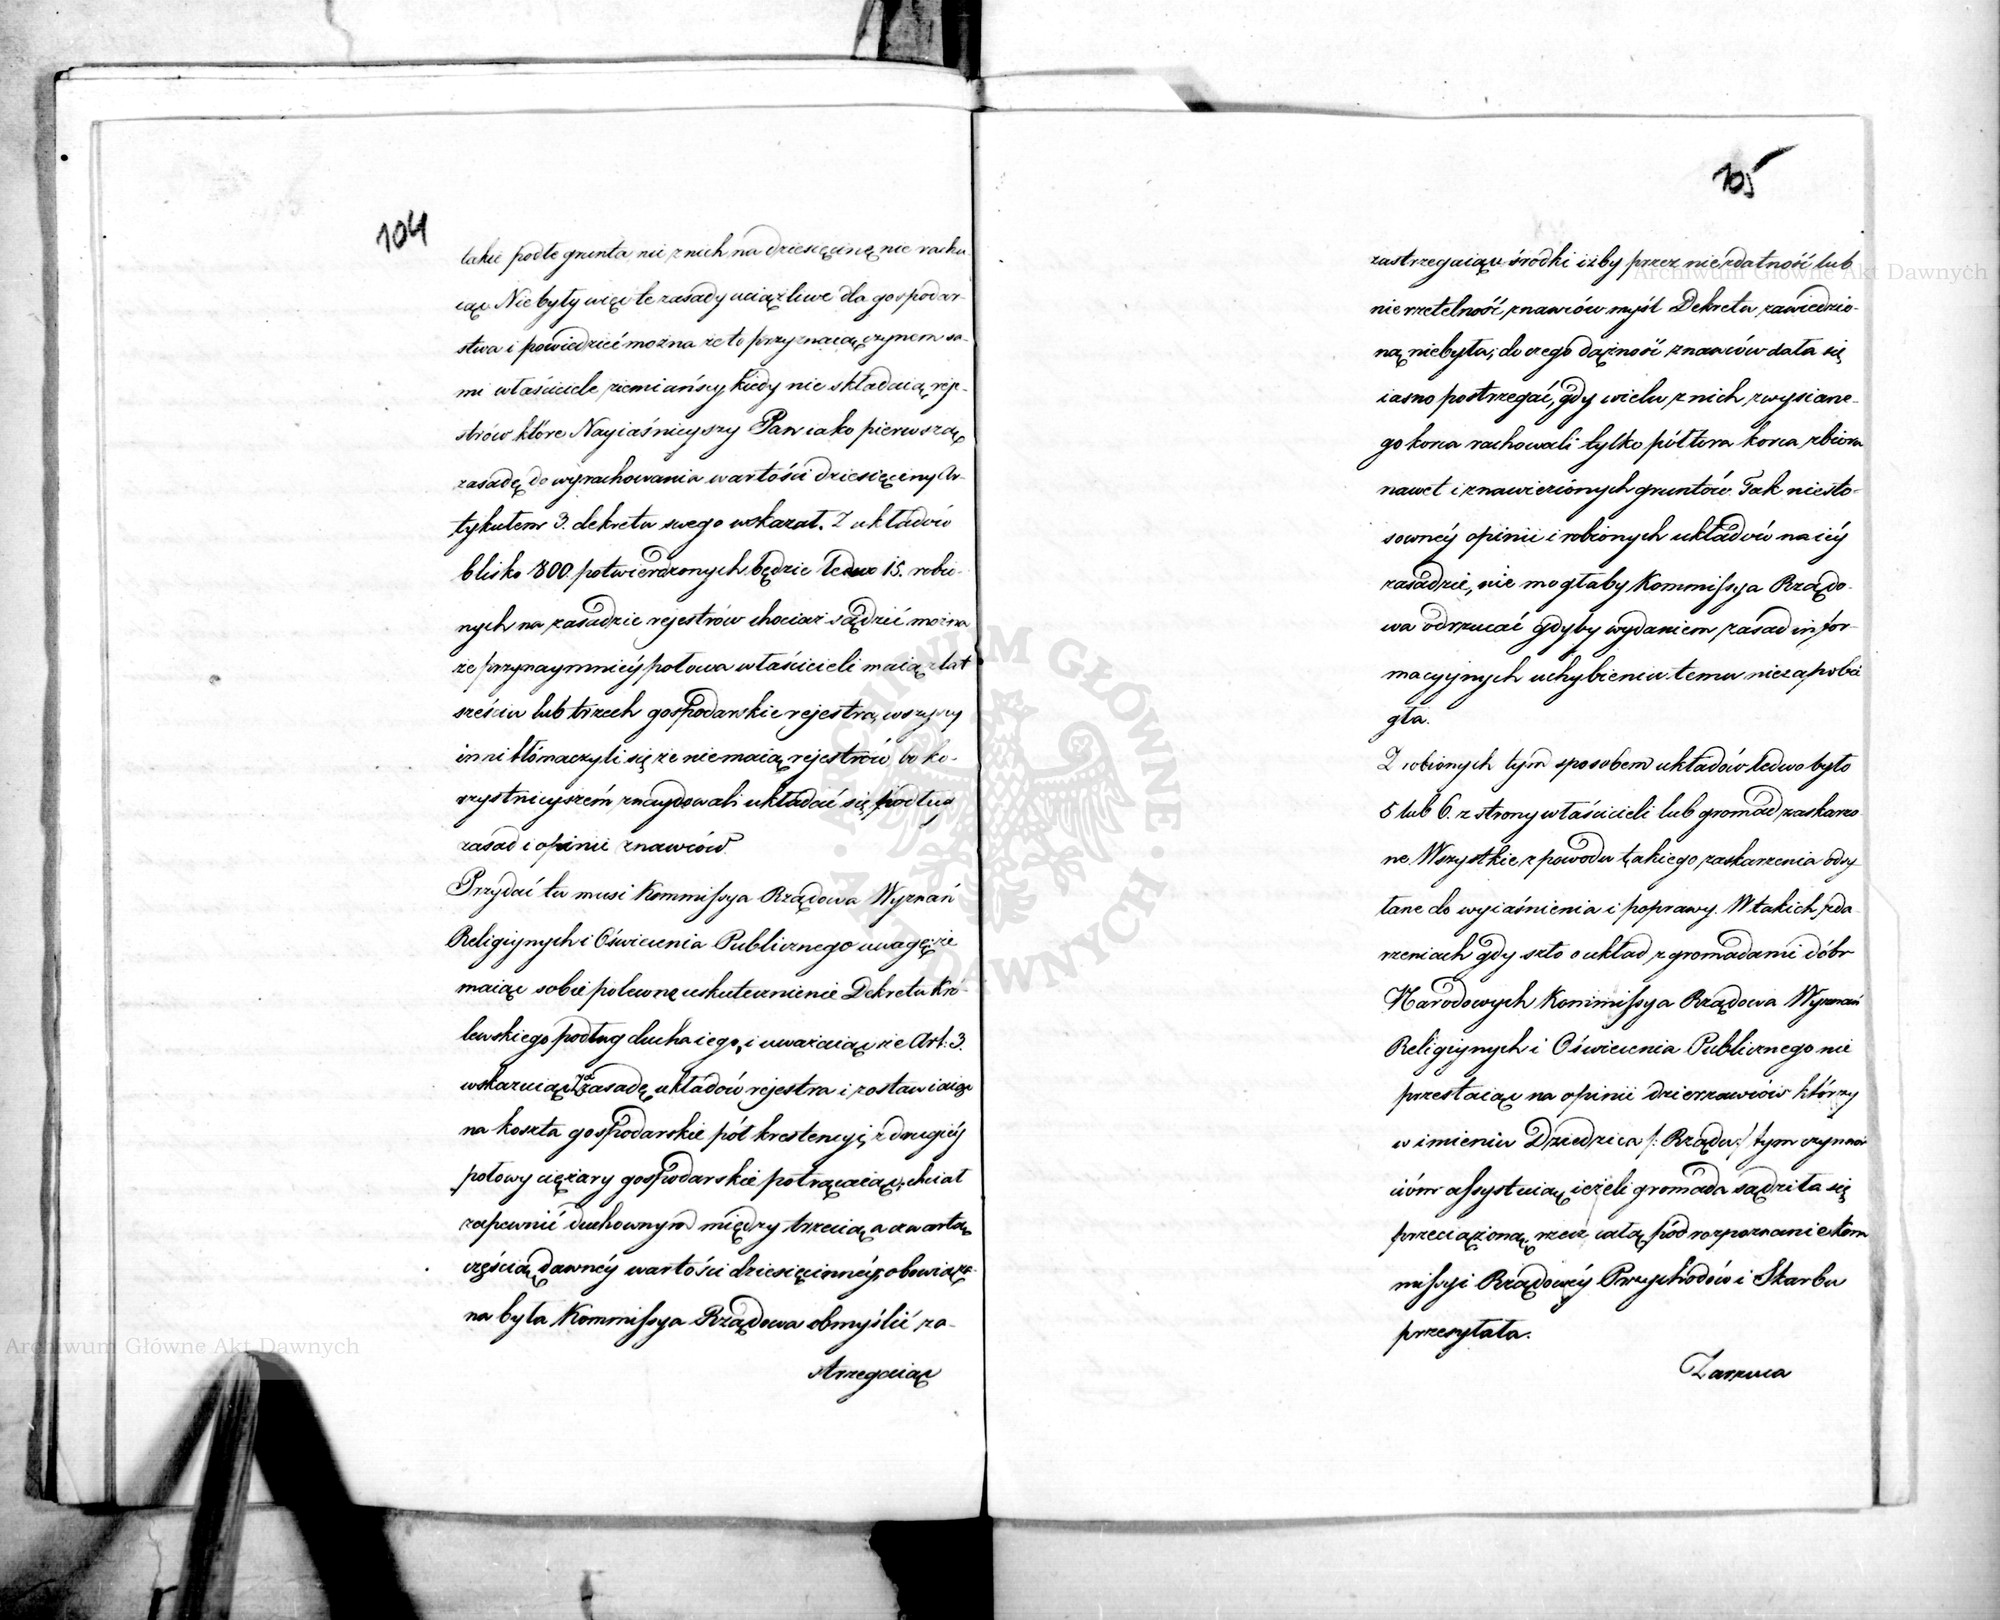 104
takie podłe grunta, nic z nich na dziesięcinę nie rachu
iąc Niebyły więc te zasady uciążliwe dla gospodar-
stwa i powiedzieć można że to przyznaią czynem sa-
mi właściciele ziemiańscy, kiedy nie składaią rej-
strów które Nayiaśnieyszy Pan iako pierwszą
zasadę do wyrachowania wartości dziesięciny Ar-
tykułem 3. dekretu swego wskazał. Z układów
blisko 800. potwierdzonych będzie ledwo 15. robio-
nych na zasadzie rejestrów chociaż sądzić można
że przynaymniéy połowa właścicieli maią z lat
sześciu lub trzech gospodarskie rejestra, wszyscy
inni tłómaczyli się że nie maią rejestrów bo ko-
rzystnieyszém znaydowali układać się, podług
zasad i opinii znawców
Przydać tu musi Kommissya Rządowa Wyznań
Religiynych i Oświecenia Publicznego uwagę; że
maiąc sobie poleconę uskutecznienie Dekretu Kró-
lewskiego podług ducha iego, i uważaiąc że Art: 3.
wskazuiąc za zasadę układów rejestra i zostawiaiąc
na koszta gospodarskie pół krestencyi, z drugiéy
połowy ciężary gospodarskie potrącaiąc, chciał
zapewnić duchownym między trzecią a czwartą
częścią dawnéy wartości dziesięcinnéy, obowiąza-
na była Kommissya Rządowa obmyślić za-
strzegaiąc
105
zastrzegaiące środki iżby przez niezdatność lub
nierzetelność znawców myśl Dekretu zawiedzio-
ną niebyła; do czego dążność znawców dała się
iasno postrzegać, gdy wielu z nich z wysiane-
go korca rachowali tylko półtora korca zbioru
nawet i z nawiezionych gruntów. Tak niesto-
sownéy opinii i robionych układów na iéy
zasadzie, nie mogłaby Kommissya Rządo-
wa odrzucać gdyby wydaniem zasad infor-
macyjnych uchybieniu temu niezapobie
gła.
Z robionych tym sposobem układów ledwo było
5 lub 6. z strony właścicieli lub gromad zaskarżo
ne. Wszystkie z powodu takiego zaskarżenia odsy
łane do wyiaśnienia i poprawy. W takich zda
rzeniach gdy szło o układ z gromadami dóbr
Narodowych Kommissya Rządowa Wyznań
Religiynych i Oświecenia Publicznego nie
przestaiąc na opinii dzierżawców którzy
w imieniu Dziedzica /: Rządu :/ tym czynno
ścióm assystuią, ieżeli gromada sądziła się
przeciążoną, rzecz całą pod rozpoznanie Kom
missyi Rządowéy Przychodów i Skarbu
przesyłała.
Zarzuca
Archiwum Główne Akt Dawnych
Archiwum Główne Akt Dawnych
ARCHIWUM GŁÓWNE · AKT DAWNYCH ·